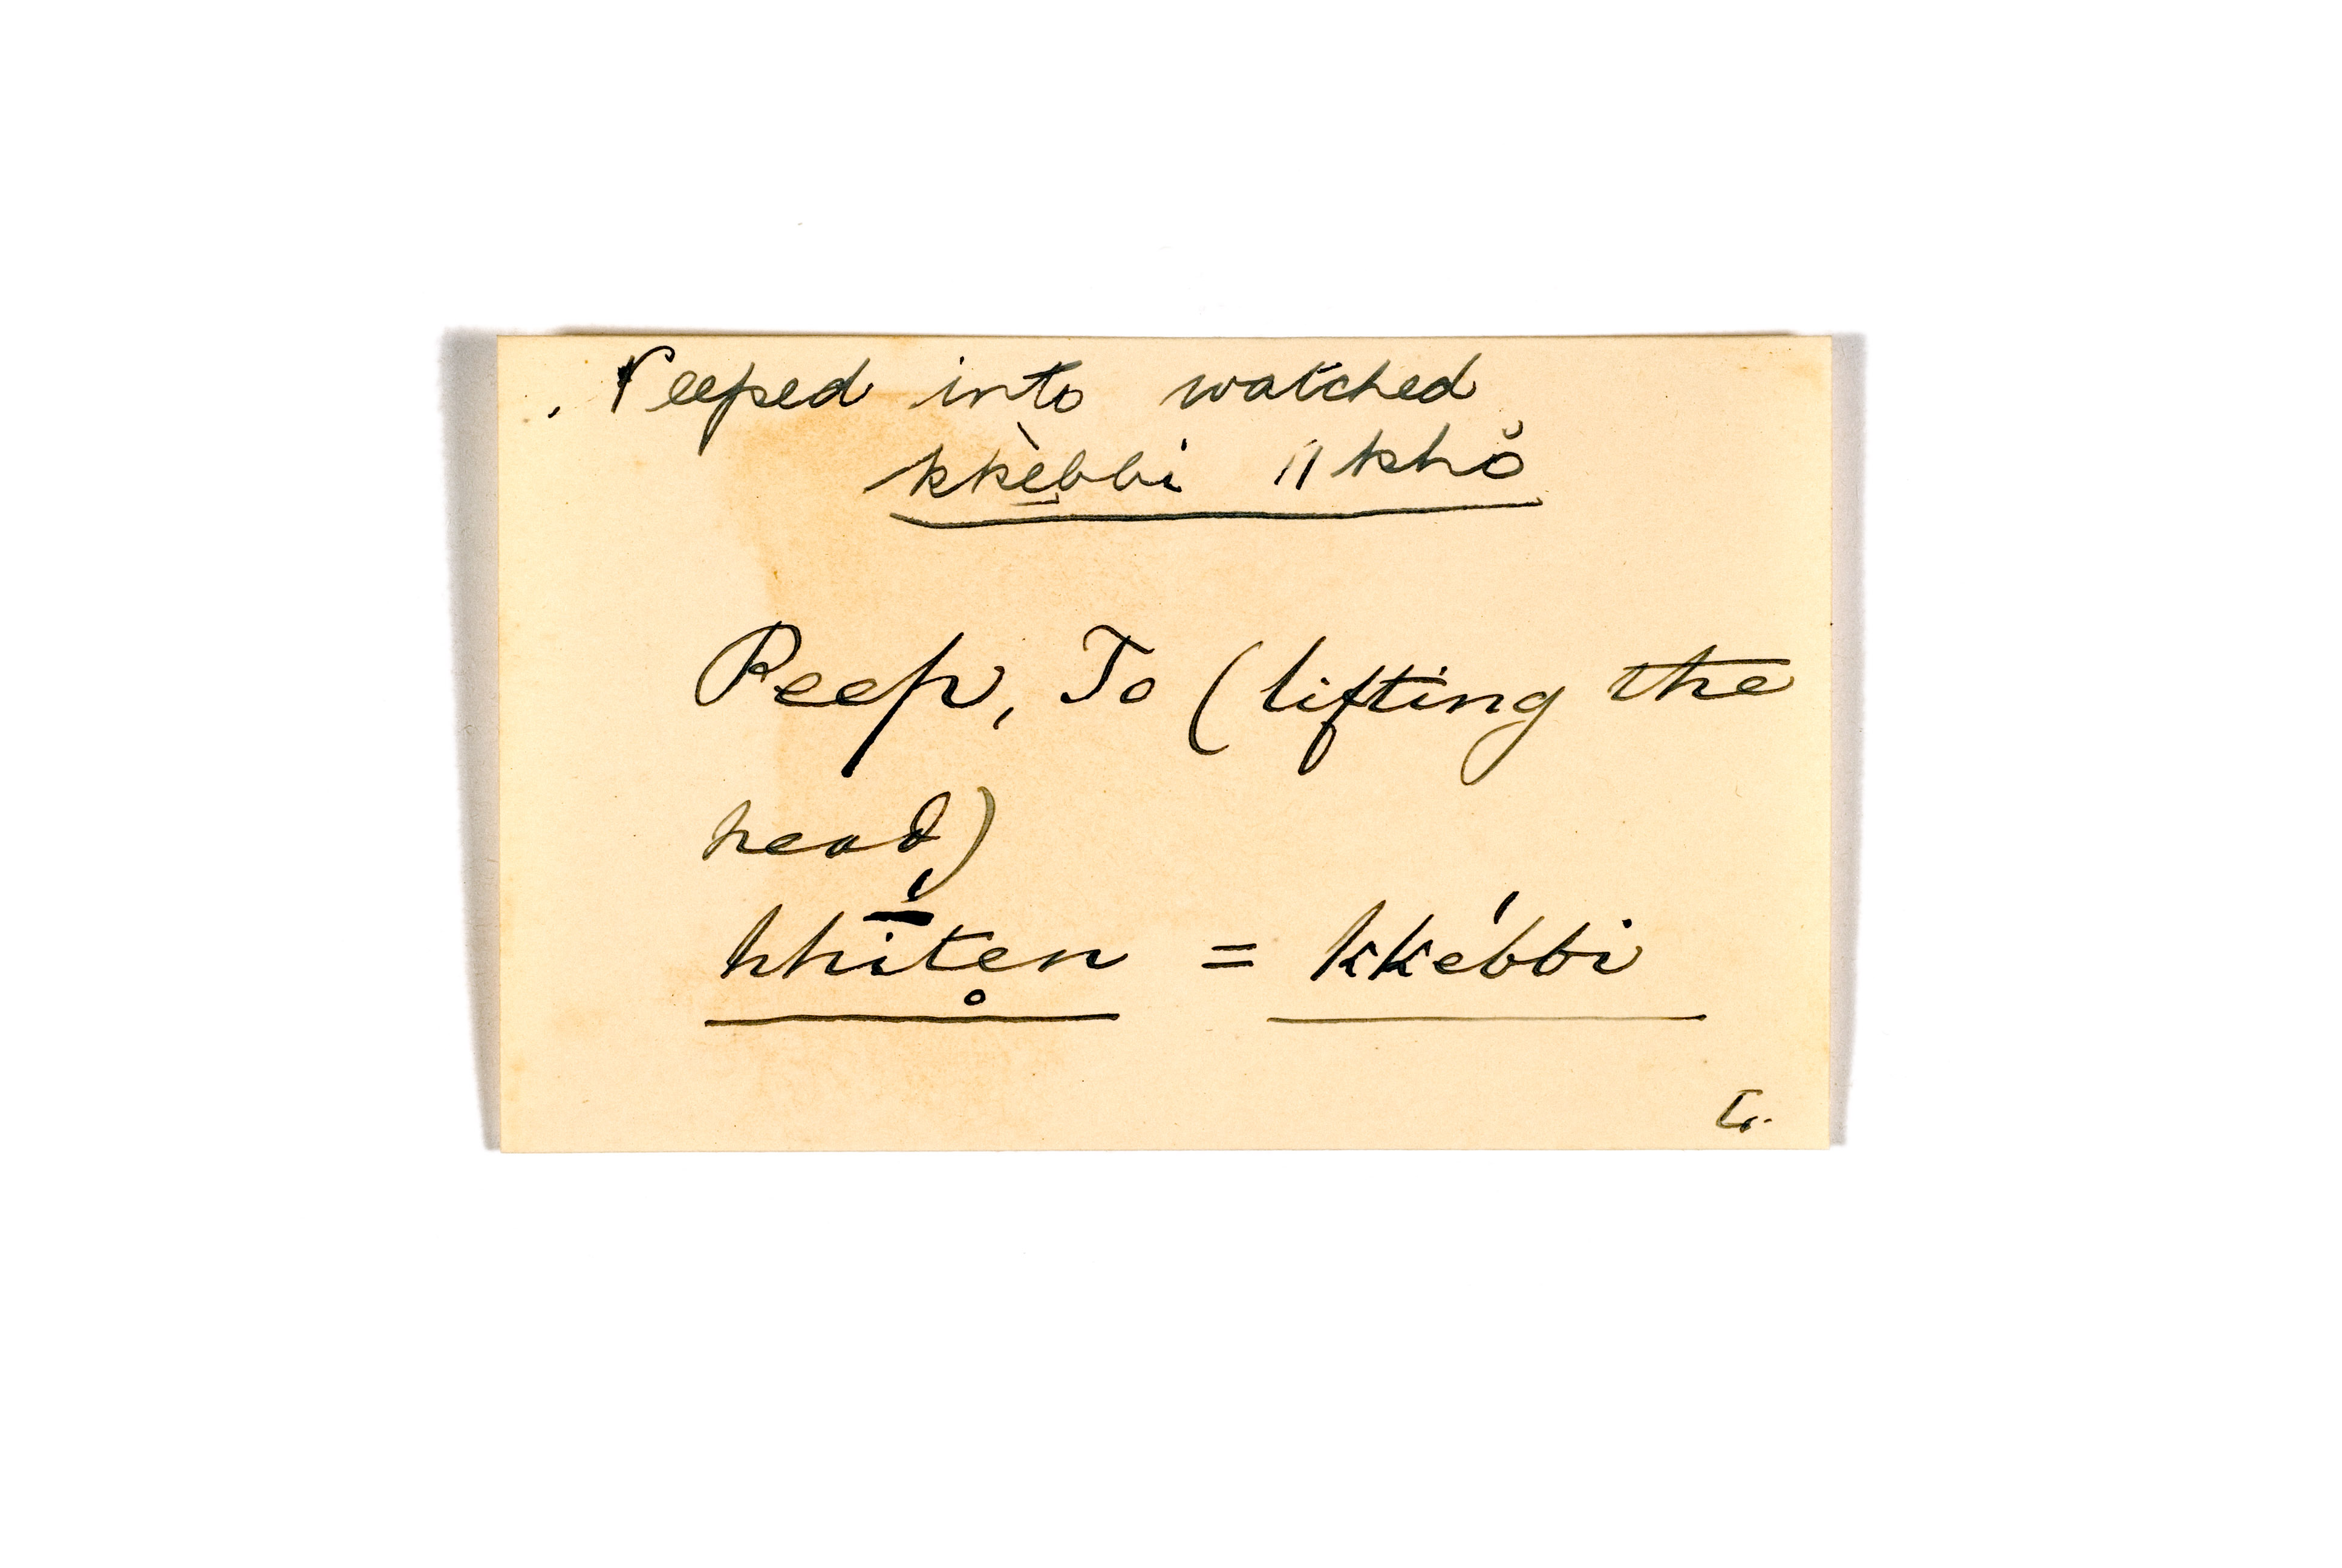 Peeped into watched
kkè̱bbi ǁkhŏ
Peep, To (lifting the
head)
hhī́te̥n = kkébbi